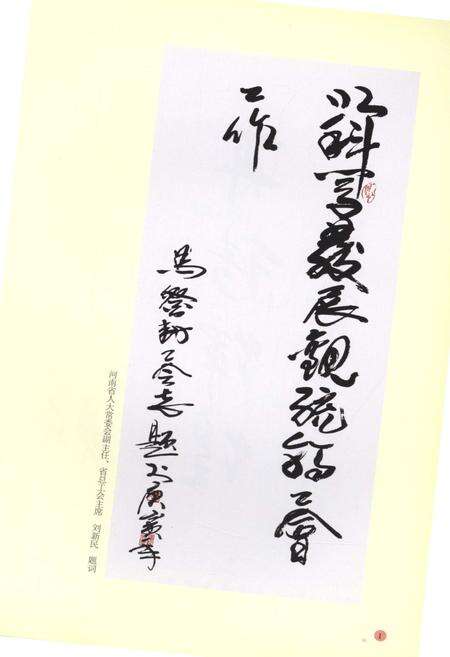 以科学發展觀統領工會
工作
為登封工会志題于庚寅年
河南省人大常委会副主任、省总工会主席 刘新民 题词
1